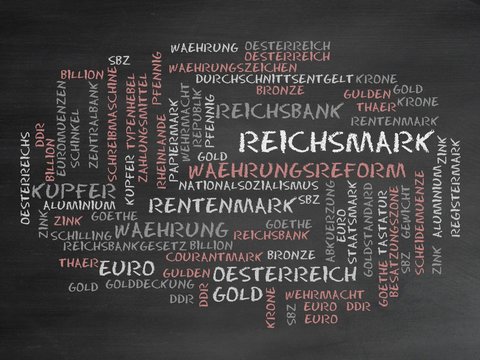 WAEHRUNG OESTERREICH
OESTERREICH
WAEHRUNGSZEICHEN
DURCHSCHNITTSENTGELT KRONE
BRONZE GULDEN GOLD
THAER KRONE
REICHSBANK RENTENMARK
REICHSMARK
GOLD
WAEHRUNGSREFORM
NATIONALSOZIALISMUS
RENTENMARK SBZ
BILLION
SBZ
OESTERREICHS
DDR
EUROMUENZEN
SCHINKEL
ZENTRALBANK
SCHREIBMASCHINE
KUPFER TYPENHEBEL
ZAHLUNGSMITTEL
RHEINLANDE PFENNIG
PAPIERMARK
WEHRMACHT
REPUBLIK
PFENNIG
KUPFER
ALUMINIUM
ZINK GOETHE
ZINK
SCHILLING WAEHRUNG GOETHE
REICHSBANKGESETZ BILLION REICHSBANK
THAER COURANTMARK BRONZE
EURO GULDEN OESTERREICH
GOLD GOLDDECKUNG GOLD
DDR DDR
KRONE
SBZ
WEHRMACHT
EURO DDR DDR
EURO
ABKUERZUNG
EURO
STAATSMARK
GOLDSTANDARD
GOETHE TASTATUR
BESATZUNGSZONE
SBZ GEWICHT
SCHEIDEMUENZE
ZINK ALUMINIUM ZINK
REGISTERMARK